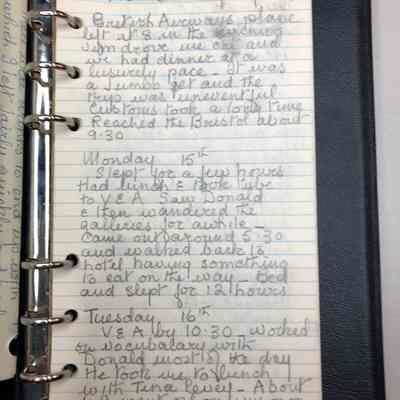 British Airways plane
left at 8 in the evening
Jym drove me out and
we had dinner at a
leisurely pace - It was
a Jumbo jet and the
trip was uneventful
Customs took a long time
Reached the Bristol about
9.30
Monday 15th
Slept for a few hours
Had lunch & took tube
to V&A Saw Donald
& then wandered the
galleries for awhile -
Came out around 5.30
and walked back to
hotel having something
to eat on the way - Bed
and slept for 12 hours
Tuesday 16th
V&A by 10.30 - worked
on vocabulary with
Donald most of the day
He took me to lunch
with Tina Levey - About